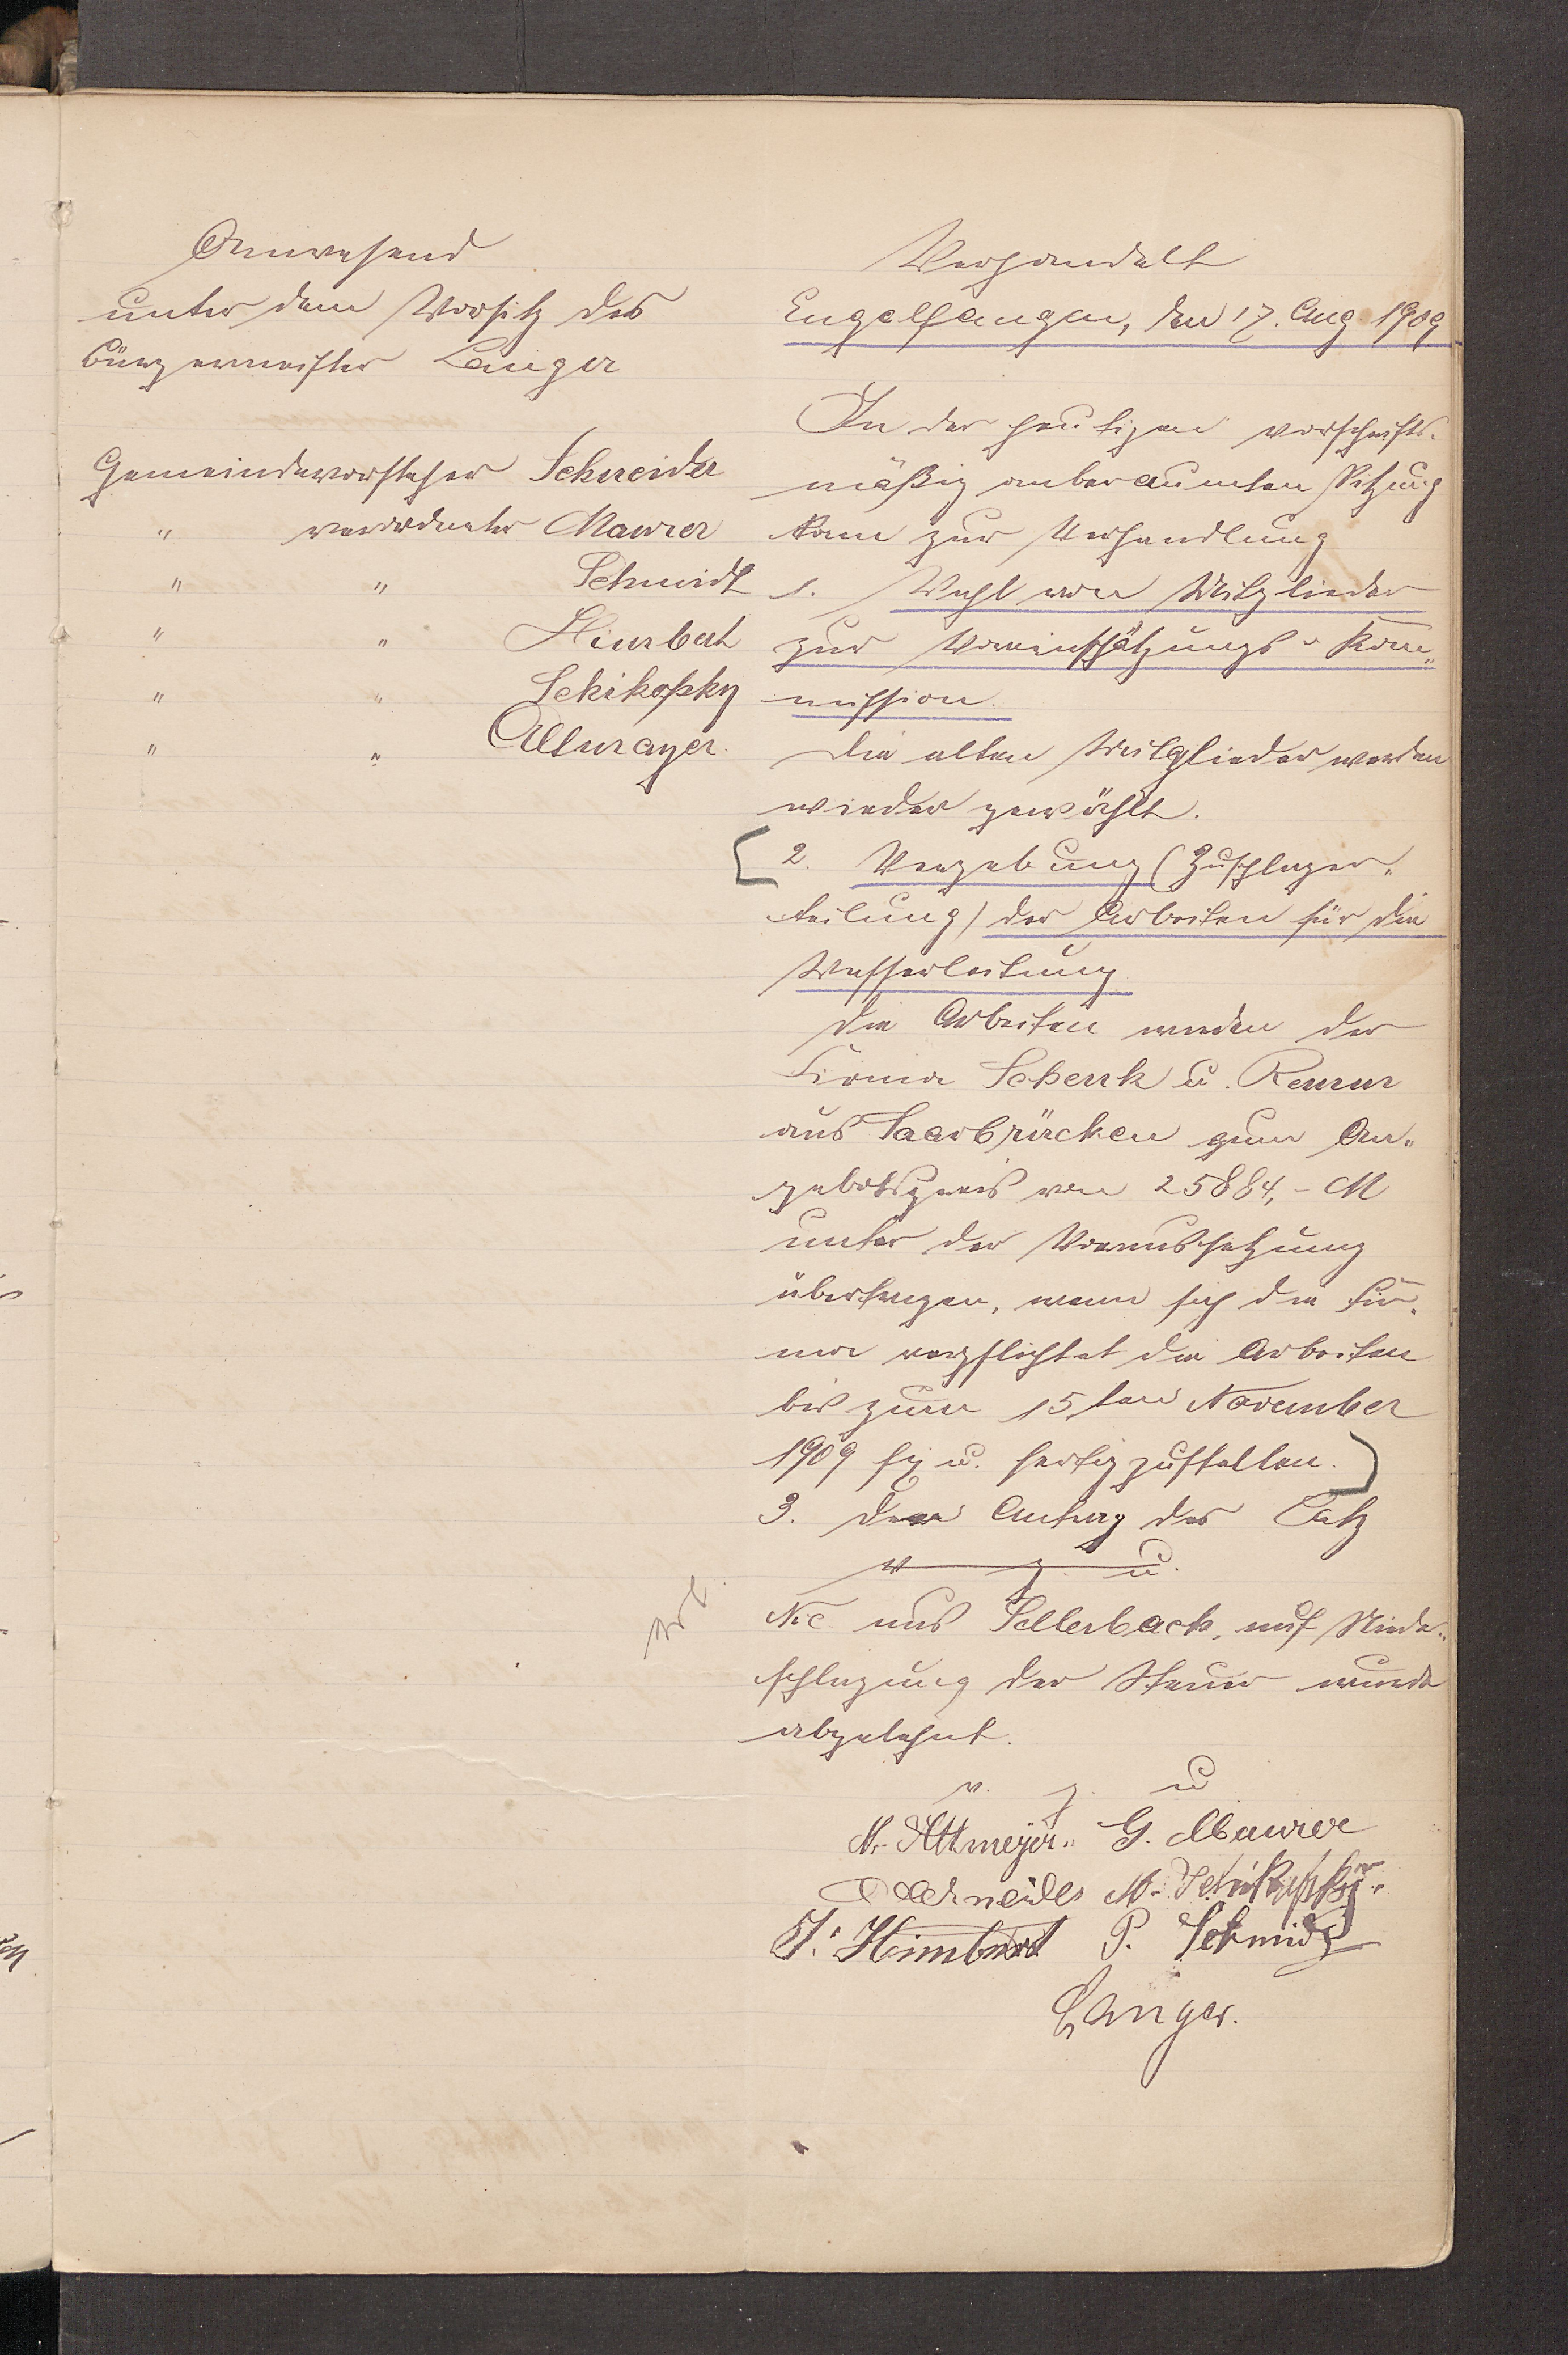 Anwesend
unter dem Vorsitz des
Bürgermeister Langer
Gemeindevorsteher Schneider
" verordneter Maurer
" " Schmidt
" " Himbert
" " Schikofsky
" " Altmayer
Verhandelt
Engelfangen, den 17. Aug. 1909
In der heutigen vorschrifts-
mäßig anberaumten Sitzung
kam zur Verhandlung
1. Wahl von Mitglieder
zur Voreinschätzungs- Kom-
mission.
Die alten Mitglieder werden
wieder gewählt.
2. Vergebung (Zuschlager-
teilung) der Arbeiten für die
Wasserleitung
Die Arbeiten werden der
Firma Schenk u.
aus Saarbrücken zum An-
gebotspreis von 25884,- M
unter der Voraussetzung
übertragen, wenn sich die Fir-
ma verpflichtet die Arbeiten
bis zum 15ten November
1909 fix u. fertigzustellen.
3. Der Antrag des
v g u.
Nic. aus Sellerbach, auf Nieder-
schlagung der Steuer wurde
abgelehnt.
v. g. u
N. Altmeyer. G. Maurer
Schneider M. Schikofsky.
J. Himbert P. Schmidt
Langer.